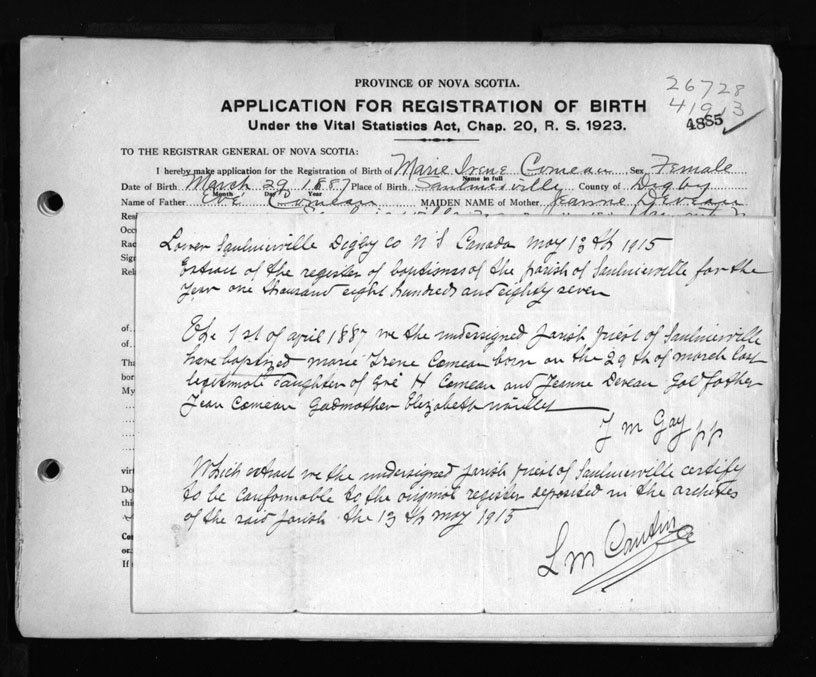 PROVINCE OF NOVA SCOTIA.
26728
APPLICATION FOR REGISTRATION OF BIRTH
41913
Under the Vital Statistics Act, Chap. 20, R. S. 1923.
4885
TO THE REGISTRAR GENERAL OF NOVA SCOTIA:
I hereby make application for the Registration of Birth of Marie Irene Comeau Sex Female
Name in full
Date of Birth March 29 1887 Place of Birth Saulniersville County of Digby
Month Day Year
Name of Father Comeau MAIDEN NAME of Mother Jeanne Deveau
Res
Occ
Rac
Sig
Rela
Lower Saulnierville Digby Co N S Canada may 13 th 1915
Extract of the register of baptisms of the parish of Saulnierville for the
Year one thousand eight hundred and eighty seven
The 1st of april 1887 we the undersigned parish priest of Saulnierville
have baptized marie Irene Comeau born on the 29 th of march last
legitimate daughter of H Comeau and Jeanne Deveau God father
Jean Comeau Godmother Elizabeth
J M Gay pp
Which extract we the undersigned parish priest of Saulnierville certify
to be conformable to the original register deposited in the archives
of the said parish the 13 th may 1915
L M
of..
of..
Tha
bor
My
virt
Dea
this
Con
or
If